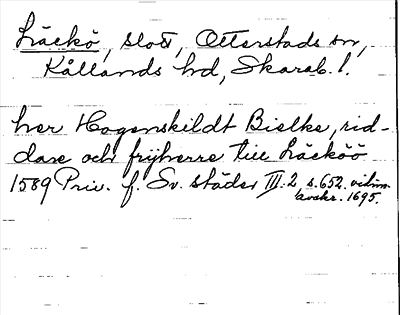 Läckö, slott, Otterstads sn,
Kållands hd, Skarab. l.
her Hogenskildt Bielke, rid-
dare och frijherre till Läcköö
1589 Priv. f. Sv. städer III:2, s. 652. vidim.
avskr. 1695.